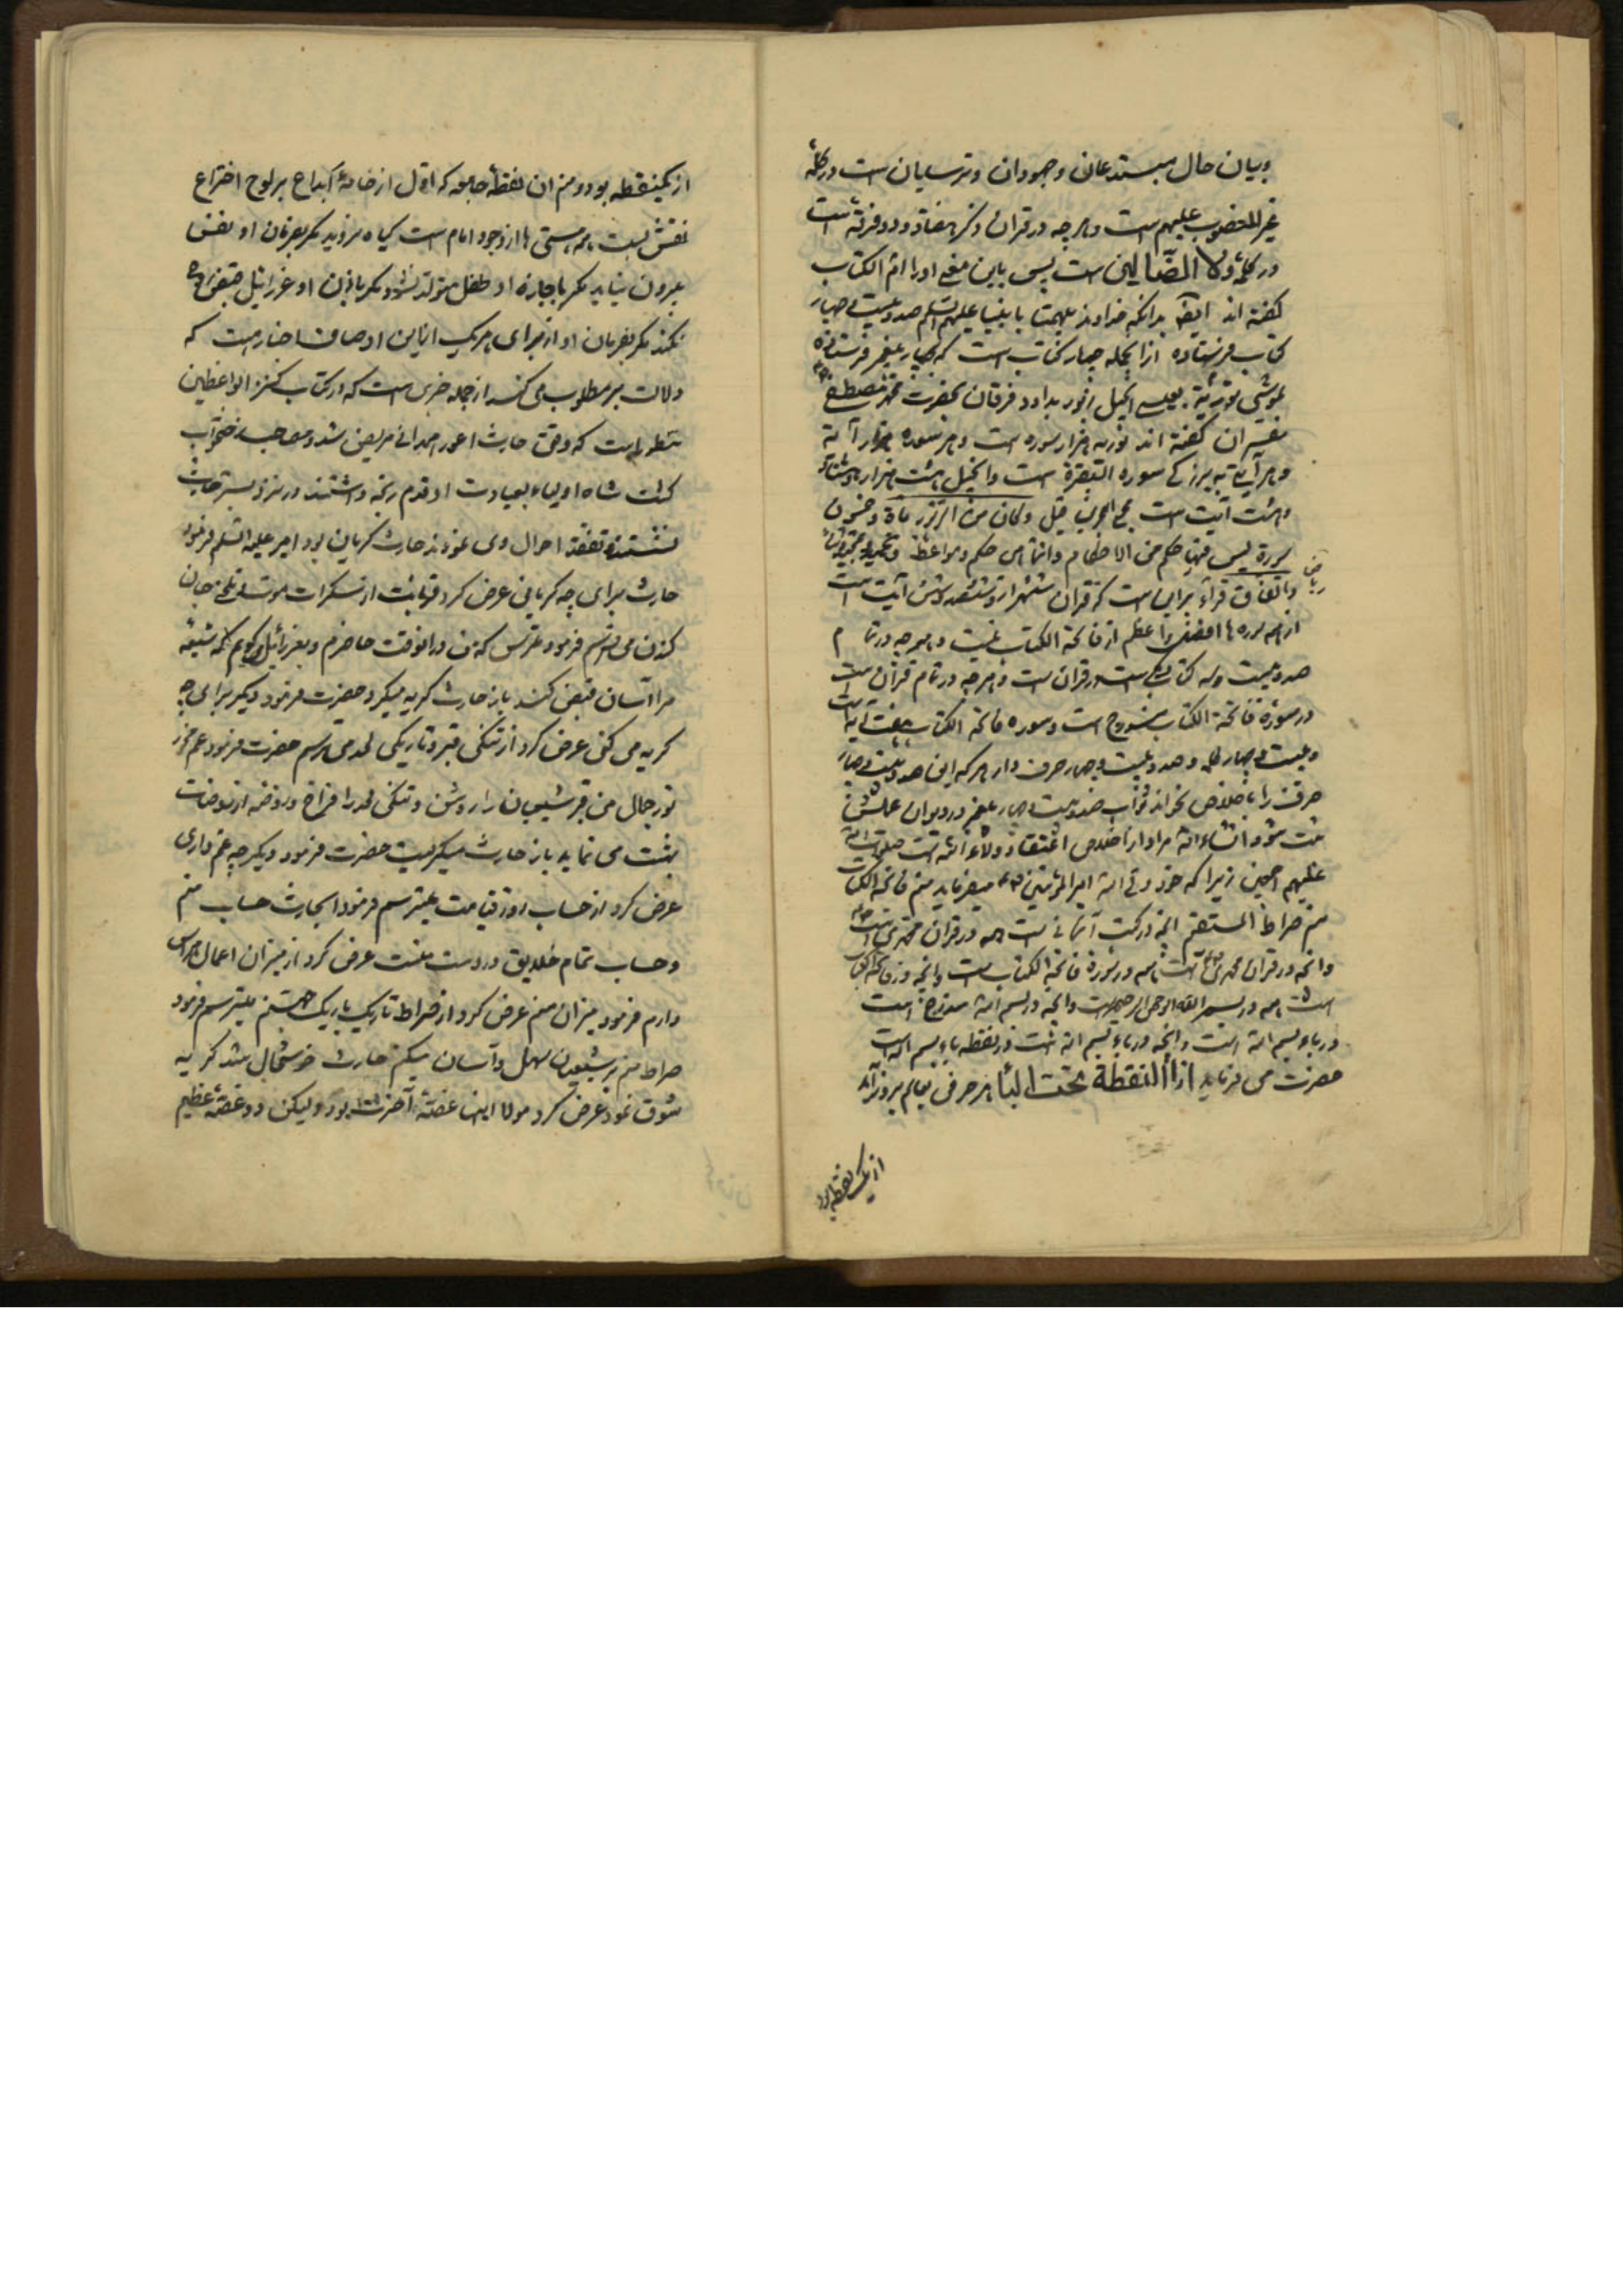 وبیان حال مبتدعان وجهودان وترسایان است در کلمهٔ
غیر المغضوب علیهم است وهرچه در قران ذکر هفتاد ودو فرقه است
در کلمهٔ ولا الضّالین است پس باین معنی اورا ام الکتاب
کفته اند ایضا بدانکه خداوند بانبیا علیهم السلم صد وبیست وچهار
کتاب فرستاده ازانجمله چهار کتاب است که بچهار پیغمبر فرستاده
بموسی توریة بعیسی انجیل زبور بداود فرقان بحضرت محمد مصطفی
مفسران کفته اند توریه هزار سوره است وهر سوره هزار آیه
وهر آیه به بزرکی سوره البقرة است وانجیل هشت هزار وهشتاد
وهشت آیت است قیل وکان من الزبور مأة وخمسون
سورة لیس فیها حکم من الاحکام وانما هی حکم ومواعظ وتحمید وتمجید
ریاض
وباتفاق قراء بر این است که قران ششهزار وششصد وشش آیت است
از همه سوره ها افضل واعظم از فاتحة الکتاب نیست وهرچه در تمام
صد وبیست وسه کتاب است در قران است وهرچه در تمام قران است
در سورهٔ فاتحة الکتاب است وسوره فاتحة الکتاب هفت آیه است
وبیست وچهار کلمه وصد وبیست وچهار حرف دارد هر که این صد وبیست وچهار
حرف را باخلاص بخواند ثواب صد وبیست وچهار پیغمبر در دیوان عملش
ثبت شود انشاءالله مراد از اخلاص اعتقاد وولاء ائمه است صلوات الله
علیهم اجمعین زیرا که خود ولی الله امیر المؤمنین میفرماید منم فاتحة الکتاب
منم صراط المستقیم انچه در کتب آسمانی است همه در قران محمدی است
وانچه در قران محمدی است همه در سورة فاتحة الکتاب است وانچه در فاتحة الکتاب
است همه در بسم الله الرحمن الرحیم است وانچه در بسم الله مندرج است
در باء بسم الله است وانچه در باء بسم الله است در نقطه باء بسم الله است
حضرت می فرماید انا النقطة تحت الباء هر حرفی بعالم بروز آمد
از یک نقطه بود
از یکنقطه بود ومنم ان نقطهٔ جامعه که اوّل از خامهٔ ابداع بر لوح اختراع
نقش بست همه هستی ها از وجود امام است کیاه نروید مکر بفرمان او نفس
بیرون نیاید مکر باجازهٔ او طفل متولد نشود مکر باذن او عزرائیل قبض روح
نکند مکر بفرمان او از برای هر یک از این اوصاف اخباریست که
دلالت بر مطلوب می کند از جمله خبری است که در کتاب کنز الواعظین
مسطور است که وقتی حارث اعور همدانی مریض شد وصاحب رختخواب
کشت شاه اولیاء بعیادت او قدم رنجه داشتند در نزد بستر حارث
نشستند وتفقد احوال وی نمودند حارث کریان بود امیر علیه السلم فرمود
حارث برای چه کریانی عرض کرد قربانت از سکرات موت وتلخی جان
کندن می ترسم فرمود مترس که من درانوقت حاضرم وبعزرائیل میکویم که شیعهٔ
مرا آسان قبض کند باز حارث کریه میکرد حضرت فرمود دیکر برای چه
کریه می کنی عرض کرد از تنکی قبر وتاریکی لحد می ترسم حضرت فرمود غم مخور
نور جمال من قبر شیعیان را روشن وتنکی لحد را فراخ وروضه از روضات
بهشت می نماید باز حارث میکریست حضرت فرمود دیکر چه غم داری
عرض کرد از حساب روز قیامت میترسم فرمود ایحارث حساب منم
وحساب تمام خلایق در دست منست عرض کرد از میزان اعمال هراس
دارم فرمود میزان منم عرض کرد از صراط تاریک باریک جهنم میترسم فرمود
صراط منم بر شیعیان سهل وآسان میکنم حارث خوشحال شد کریه
شوق نمود عرض کرد مولا اینها غصهٔ آخرت بود ولیکن دو غصهٔ عظیم